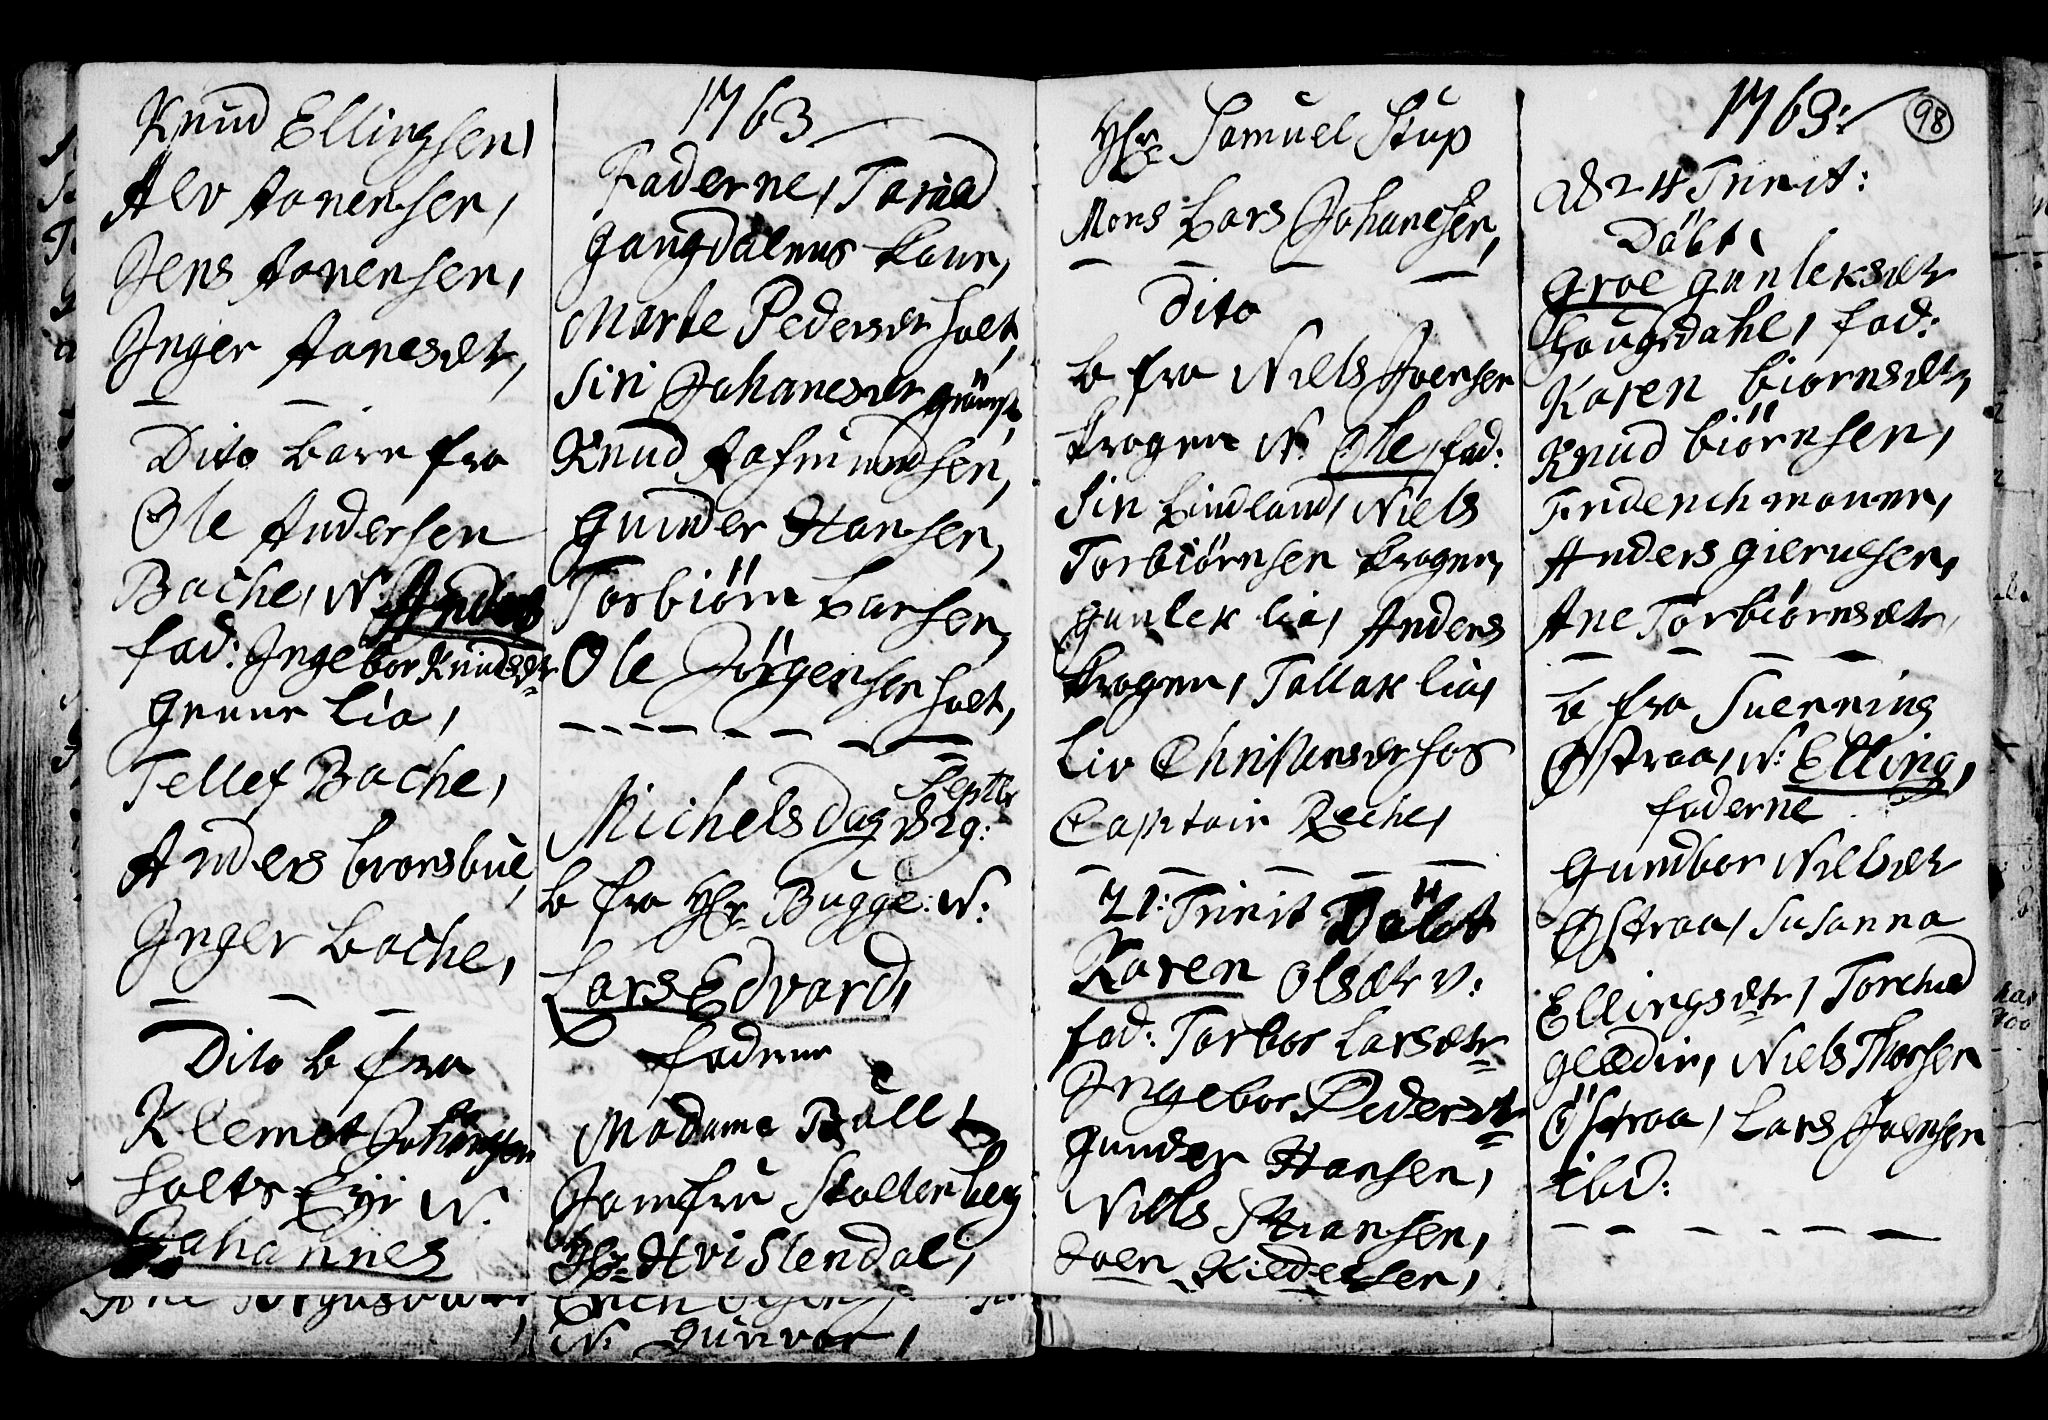 Knud Ellingsen,
Alv Aanensen,
Jens Aanensen,
Inger Aanesdtr,
Dito barn fra
Ole Andersen
Bache, N. Anders
fad: Ingebor Knudsdr
Gunur Lia,
Tellef Bache,
Anders brorsbue,
Inger Bache,
Dito b fra
Klemet Johansen
Holts Eye N.
Johannes
1763
Faderne, Taried
Haugdalens kone,
Marte Pedersdr Holt,
Siri Johanesdr
Knud Aasmundsen,
Gunder Hansen,
Torbiörn Larsen,
Ole Jörgensen Holt,
Septbr
Michels Dag d 29:
b fra Hr Bugge: N:
Lars Edvard,
fadrene
Madame Bull
Jomfru Stoltenberg
Hr Hvistendal,
N. Gunvor,
Hr Samuel Stup
Mons Lars Johanesen,
Dito
b fra Niels Joensen
Kragen N. Ole, fad:
Siri Lindland, Niels
Torbiörnsen Kragen,
Gunlek Lia, Anders
Kragen, Tallak Lia,
Liv Christensdr hos
Captain Reche,
21: Trinit Döbt
Karen Olsdtr v:
fad: Torbor Larsdtr
Ingebor Pedersdtr
Gunder Hansen,
Niels Stiansen,
Joen Kiedelsen,
1763: 98
d 24 Trinit:
Döbt,
Groe Gunleksdtr
Hougsdahl, fad:
Karen biornsdtr,
Knud biörnsen,
Friderich
Anders Gierulsen,
Ane Torbiörnsdtr,
b fra Suenning
Östraa, N: Elling,
faderne
Gundbor Nielsdtr
Östraa, Susanna
Ellingsdtr, Torchild
Niels Thorsen
Östraa, Lars Joensen
ibd: